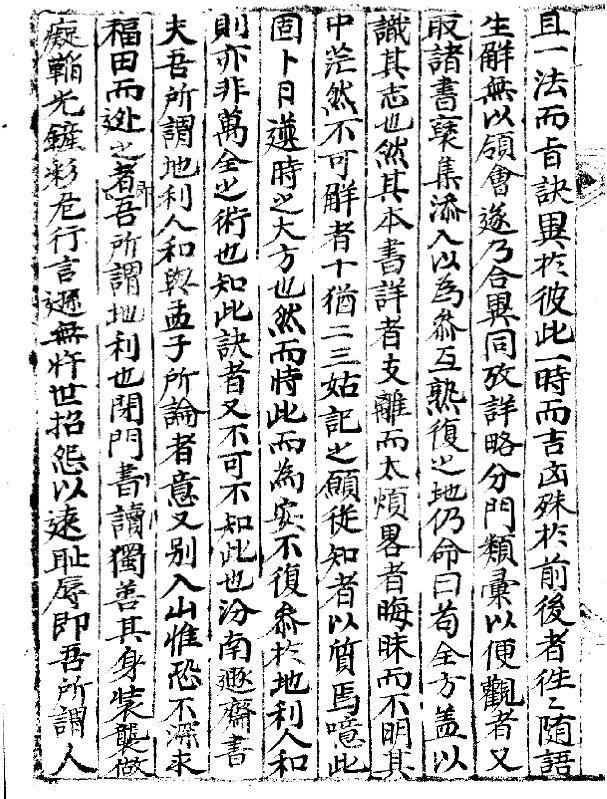 且一法而旨訣異於彼此一時而吉凶殊於前後者徃〻随語
生觧無以領會遂乃合異同攷詳略分門類彙以便觀者又
取諸書裒集添入以為叅互熟復之地仍命曰苟全方盖以
識其志也然其本書詳者支離而太煩畧者晦昧而不明其
中茫然不可觧者十猶二三姑記之願從知者以質焉噫此
固卜日避時之大方也然而恃此而為安不復叅於地利人和
則亦非萬全之術也知此訣者又不可不知此也汾南遯齋書
夫吾所謂地利人和與孟子所論者意又别入山惟恐不深求
福田而遊之者即吾所謂地利也閉門書讀獨善其身裝聾做
癡韜光鏟彩危行言遜無忤世招怨以速恥辱即吾所謂人